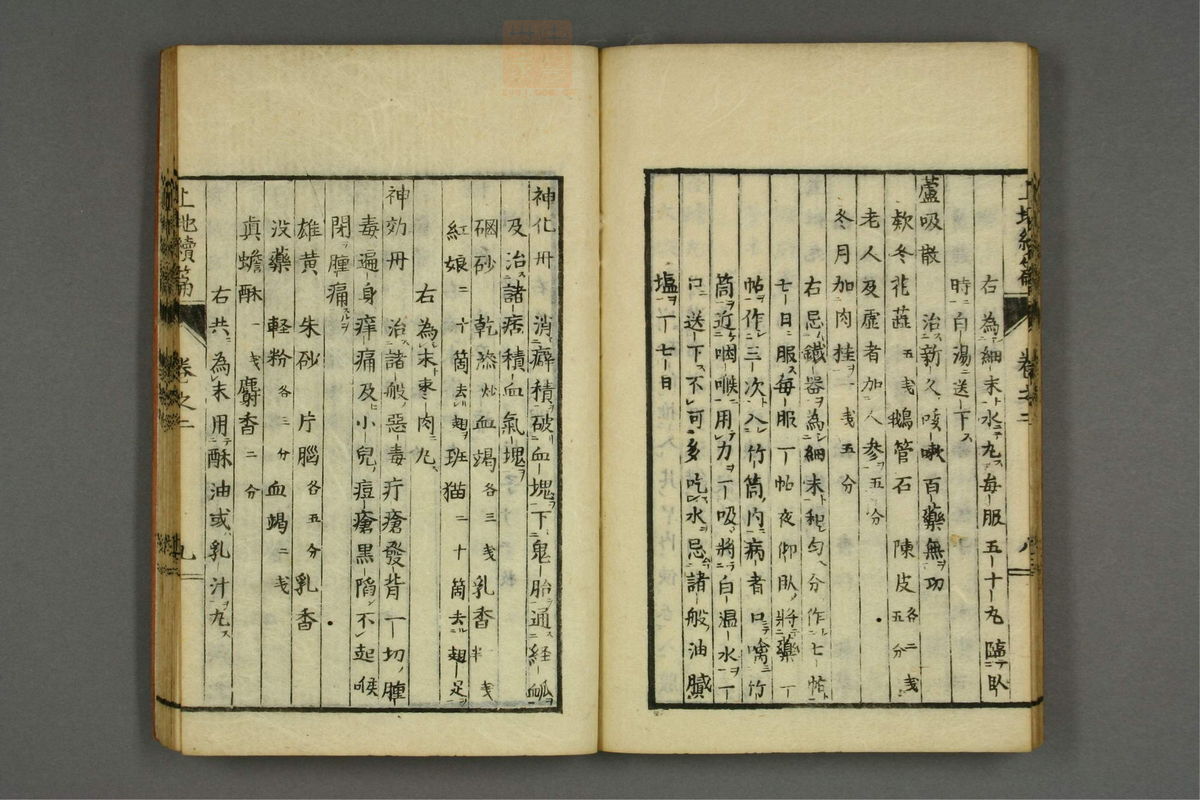 右為細末水丸每服五十丸臨臥
時白湯送下
蘆吸散 治新久咳嗽百藥無功
欸冬花蕋五戔鵝管石陳皮各二戔五分
老人及虛者加人參五分
冬月加肉桂一戔五分
右忌鐵器為細末和匀分作七帖
七日服每服丁帖夜仰臥將藥丁
帖作三次入竹筒內病者口噙竹
筒近咽喉用力一吸將白温水丁
口送下不可多吃水忌諸般油膩
塩丁七日
卷之二
八
神化丹 消癖積破血塊下鬼胎通経䘑
及治諸痞積血氣塊
硇砂 乾漆炒血竭各三戔乳香一戔半
紅娘二十箇去翅班猫二十箇去翅足
右為末棗肉丸
神効丹 治諸般惡毒疔瘡發背一切腫
毒遍身痒痛及小兒痘瘡黒陷不起喉
閉腫痛
雄黄 朱砂 片腦各五分乳香
没藥 軽粉各三分血竭二戔
眞蟾酥一戔麝香二分
右共為末用酥油或乳汁丸
上池續篇
卷之二
九